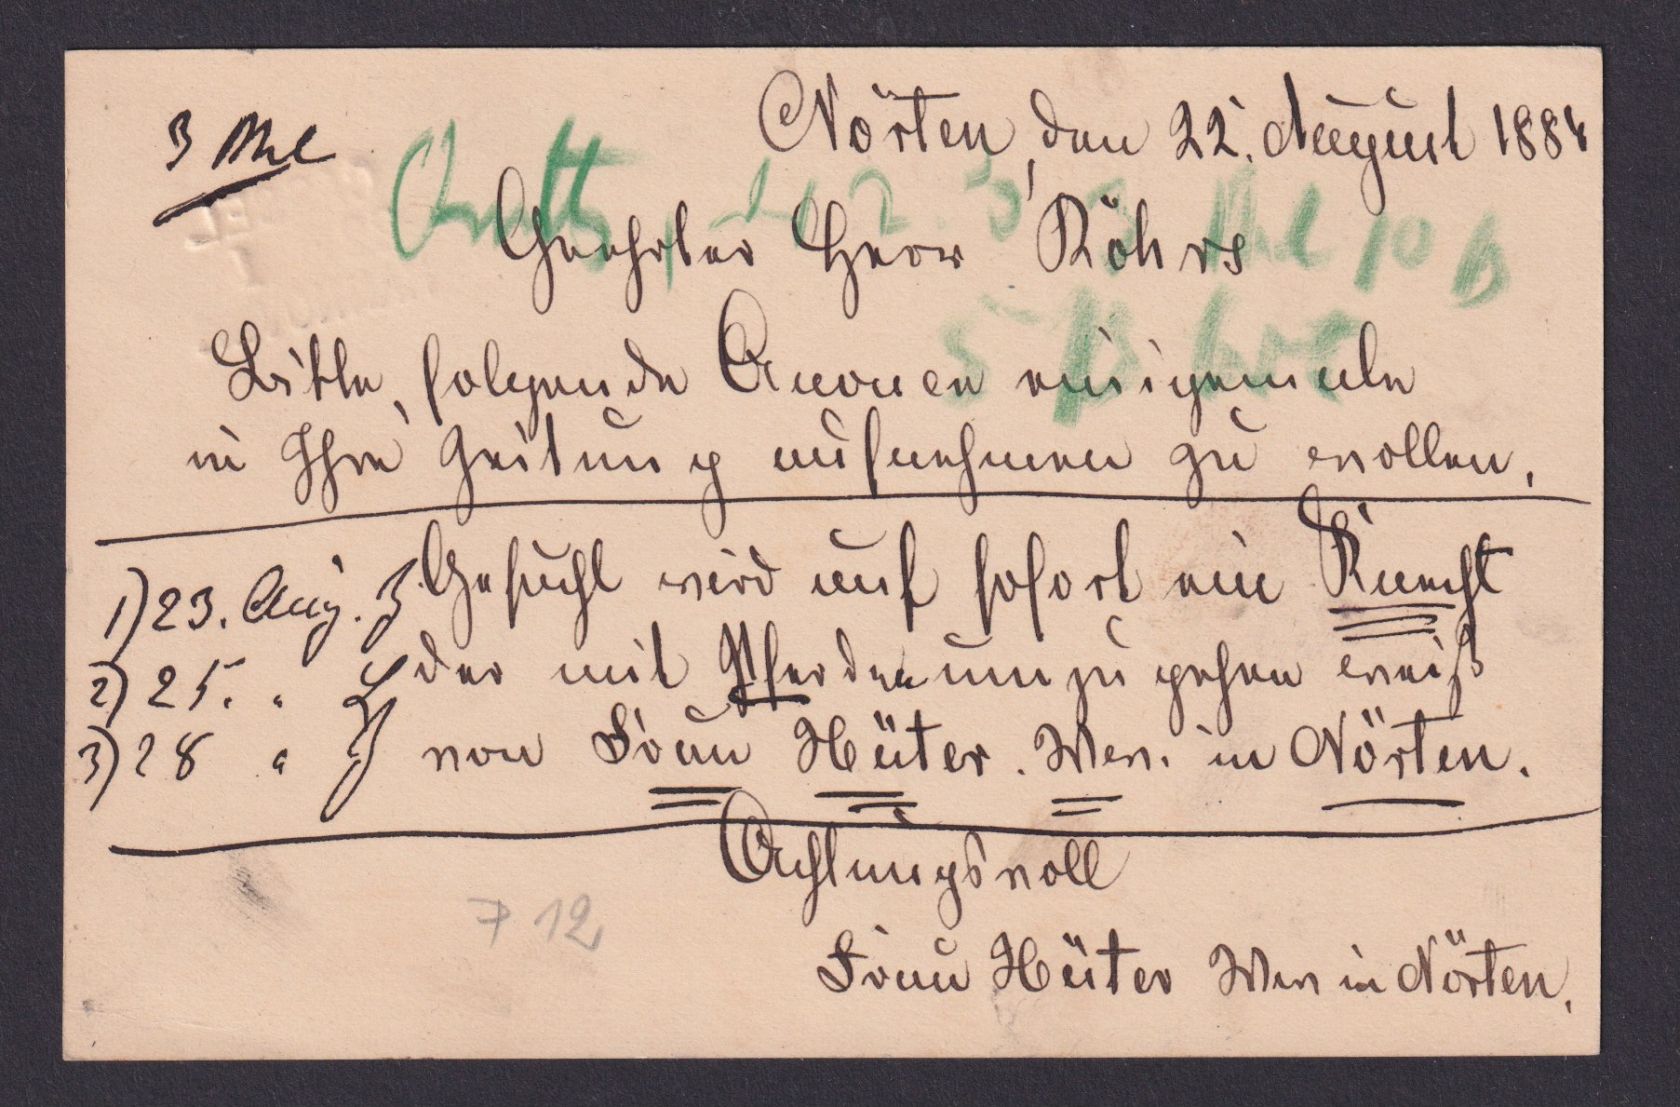 3 Mal
Nörten, den 22. August 1884
Geehrter Herr Röhrs
Bitte, folgende Anonce einigemale
in Ihre Zeitung aufnehmen zu wollen.
Gesucht wird auf sofort ein Knecht
der mit Pferden umzugehen weiß
von Frau Hüter. Wwe. in Nörten.
1) 23. Aug.
2) 25. "
3) 28 "
Achtungsvoll
Frau Hüter Wwe in Nörten.
P 12